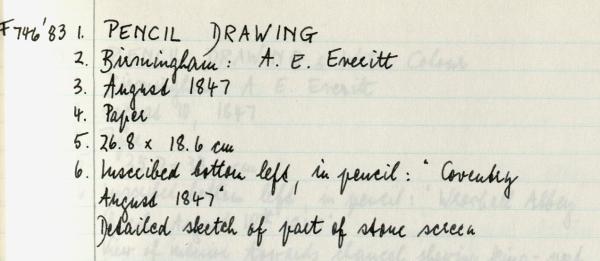 F746'83 1. PENCIL DRAWING
2. Birmingham: A. E. Everitt
3. August 1847
4. Paper
5. 26.8 x 18.6 cm
6. Inscribed bottom left, in pencil: "Coventry
August 1847"
Detailed sketch of part of stone screen